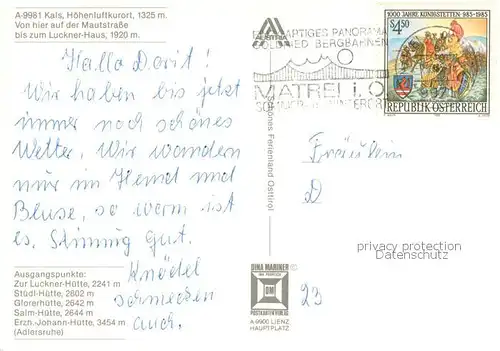 A-9981 Kals, Höhenluftkurort, 1325 m.
Von hier auf der Mautstraße
bis zum Luckner-Haus, 1920 m.
Hallo Dorit!
Wir haben bis jetzt
immer noch schönes
Wetter. Wir wandern
nur im Hemd und
Bluse, so warm ist
es. Stimmung gut.
Knödel
schmecken
auch.
Ausgangspunkte:
Zur Luckner-Hütte, 2241 m
Stüdl-Hütte, 2802 m
Glorerhütte, 2642 m
Salm-Hütte, 2644 m
Erzh.-Johann-Hütte, 3454 m
(Adlersruhe)
AUSTRIA
Schönes Ferienland Osttirol
DINA MARINER
DM
POSTKARTENVERLAG
A-9900 LIENZ
HAUPTPLATZ
PANORAMA
GOLDRIED BERGBAHNEN
MATREI i. O.
1000 JAHRE KÖNIGSTETTEN 985-1985
S 4.50
REPUBLIK ÖSTERREICH
Fräulein
D
privacy protection
AKPool.de
23